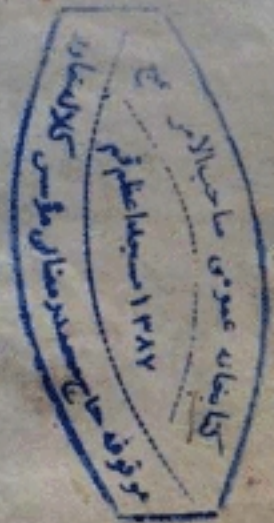 کتابخانه عمومی صاحب الامر عج
۱۳۸۷ مسجد اعظم قم
موقوفه حاج سید رمضانی مؤسس کتابخانه